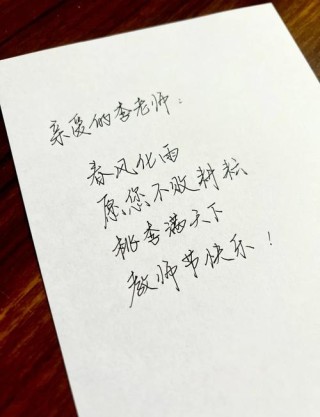 亲爱的李老师:
春风化雨
愿您不败耕耘
桃李满天下
教师节快乐!